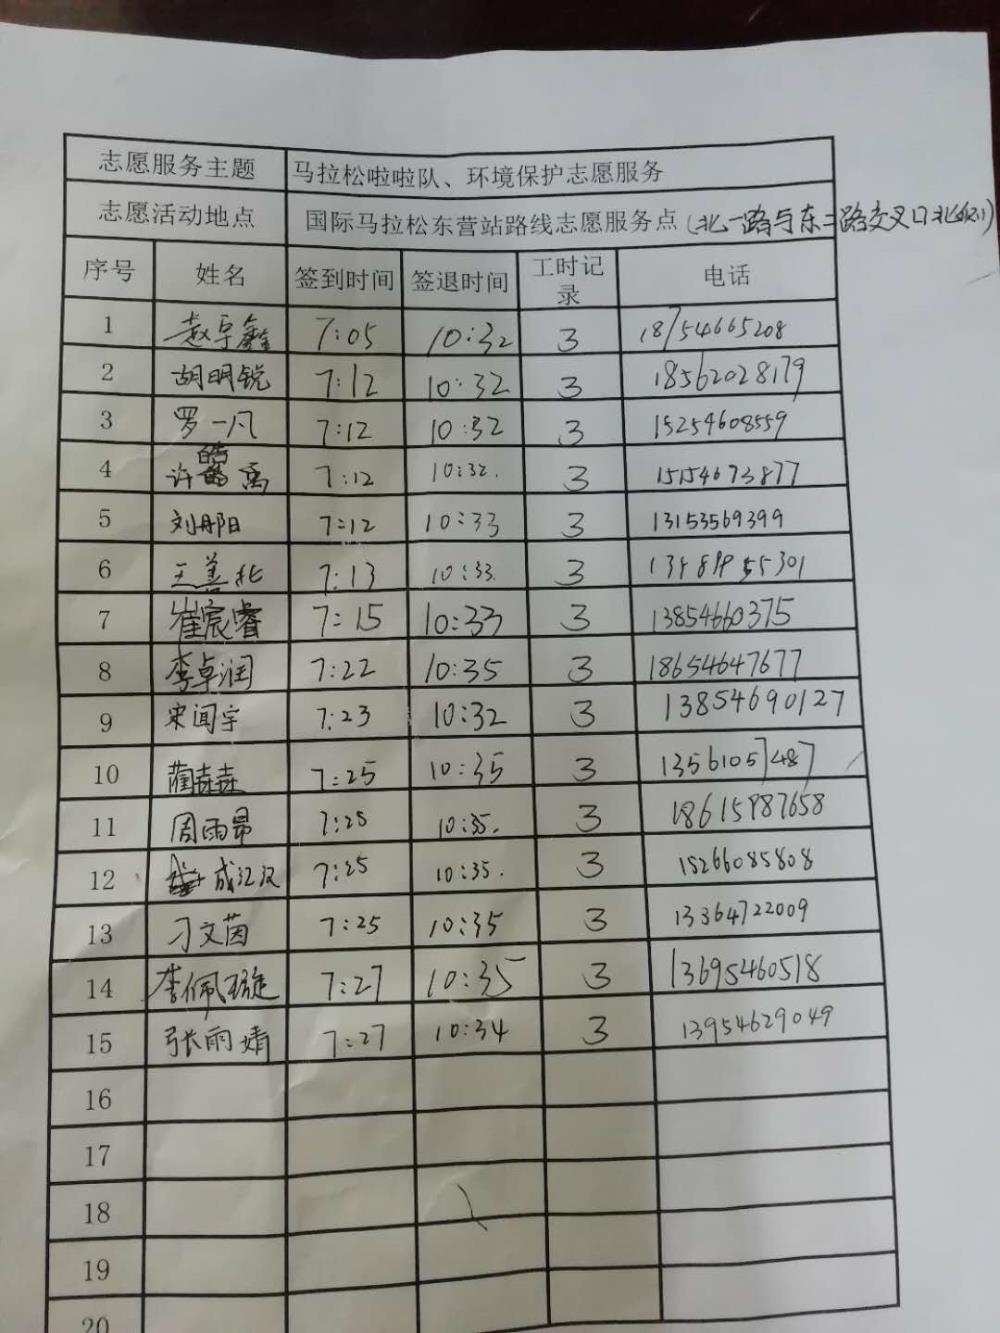 志愿服务主题 马拉松啦啦队、环境保护志愿服务
志愿活动地点 国际马拉松东营站路线志愿服务点(北一路与东二路交叉口北侧)
序号 姓名 签到时间 签退时间 工时记录 电话
1 赵宇鑫 7:05 10:32 3 18754665208
2 胡明锐 7:12 10:32 3 18562028179
3 罗一凡 7:12 10:32 3 15254608559
4 许皓禹 7:12 10:32. 3 15154673877
5 刘彤阳 7:12 10:33 3 13153569399
6 王善北 7:13 10:33. 3
7 崔宸睿 7:15 10:33 3 13854660375
8 李卓润 7:22 10:35 3 18654647677
9 宋闻宇 7:23 10:32 3 13854690127
10 蔺垚垚 7:25 10:35 3 13561057487
11 周雨昂 7:25 10:35. 3 18615987658
12 成江汉 7:25 10:35. 3 15266085808
13 刁文茵 7:25 10:35 3 13364722009
14 李佩璇 7:27 10:35 3 13695460518
15 张雨婧 7:27 10:34 3 13954629049
16
17
18
19
20